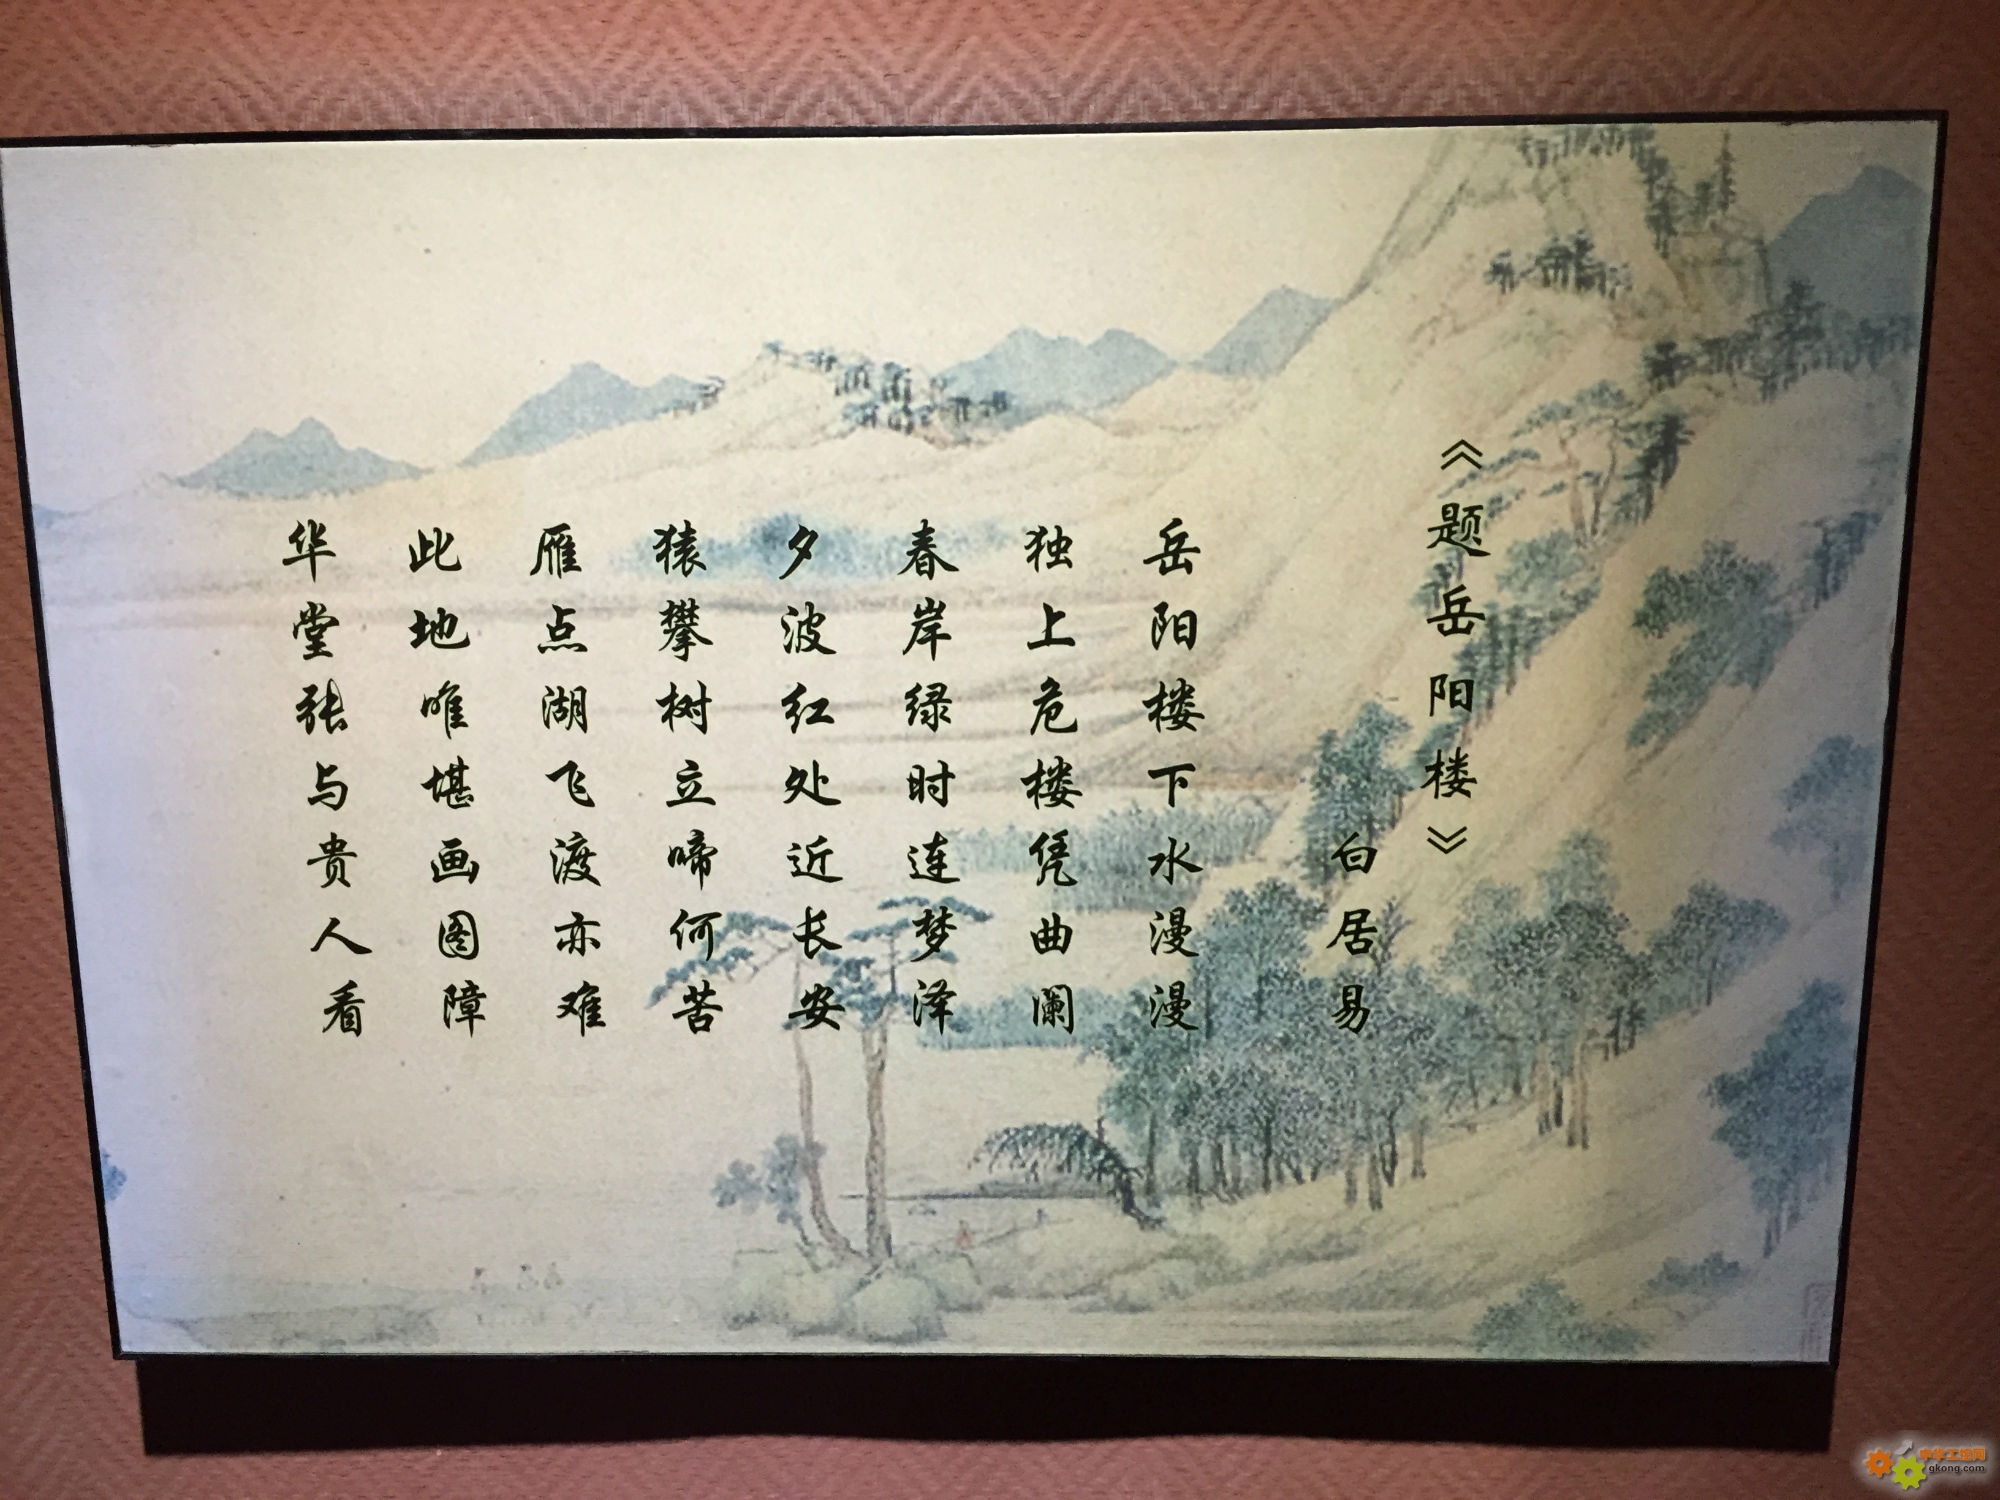 《题岳阳楼》
白居易
岳阳楼下水漫漫
独上危楼凭曲阑
春岸绿时连梦泽
夕波红处近长安
猿攀树立啼何苦
雁点湖飞渡亦难
此地唯堪画图障
华堂张与贵人看
中华工控网
gkong.com